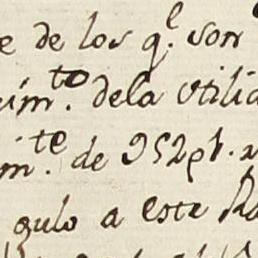 e de los q.^l son
cim.^to dela utilid
m.^te de 952 p^s. 
gulo a este R